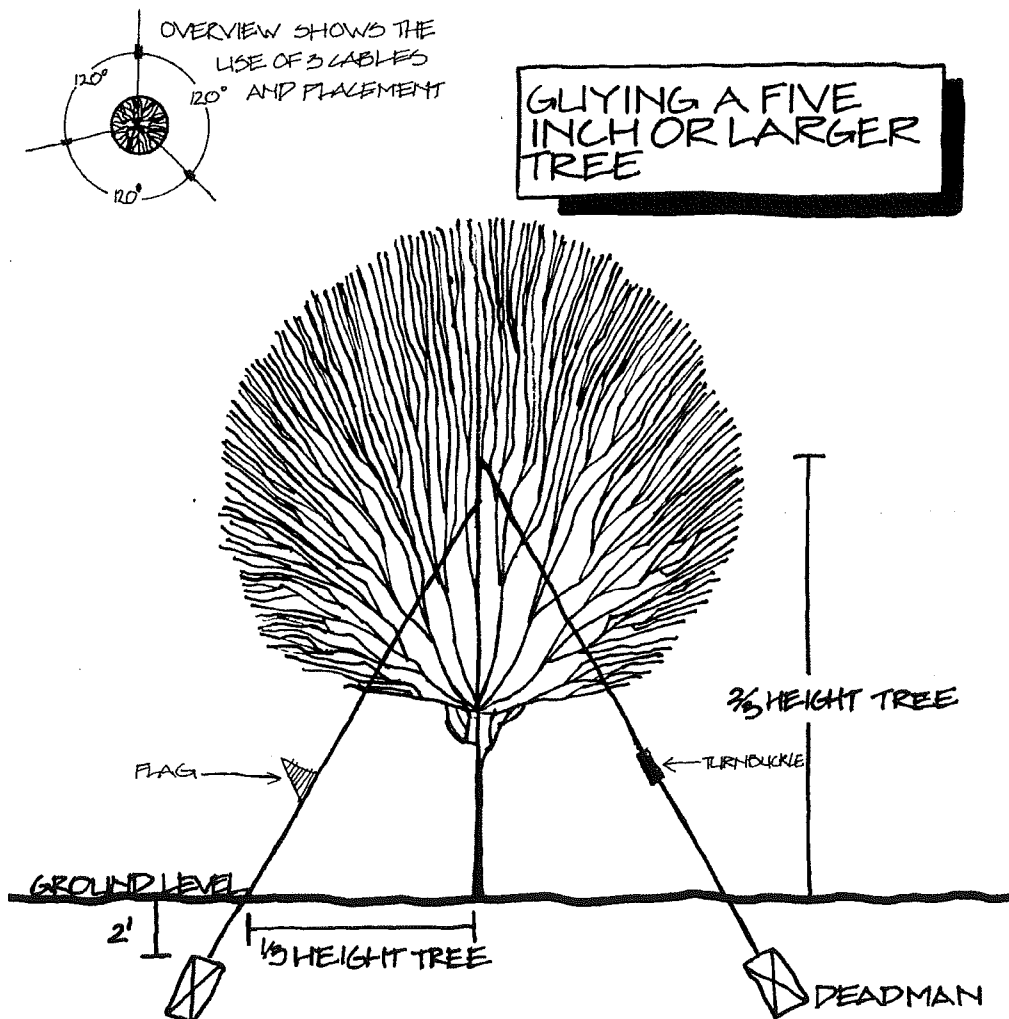 OVERVIEW SHOWS THE
USE OF 3 CABLES
AND PLACEMENT
120°
120°
120°
GUYING A FIVE
INCH OR LARGER
TREE
2/3 HEIGHT TREE
FLAG
TURNBUCKLE
GROUND LEVEL
2'
1/3 HEIGHT TREE
DEADMAN